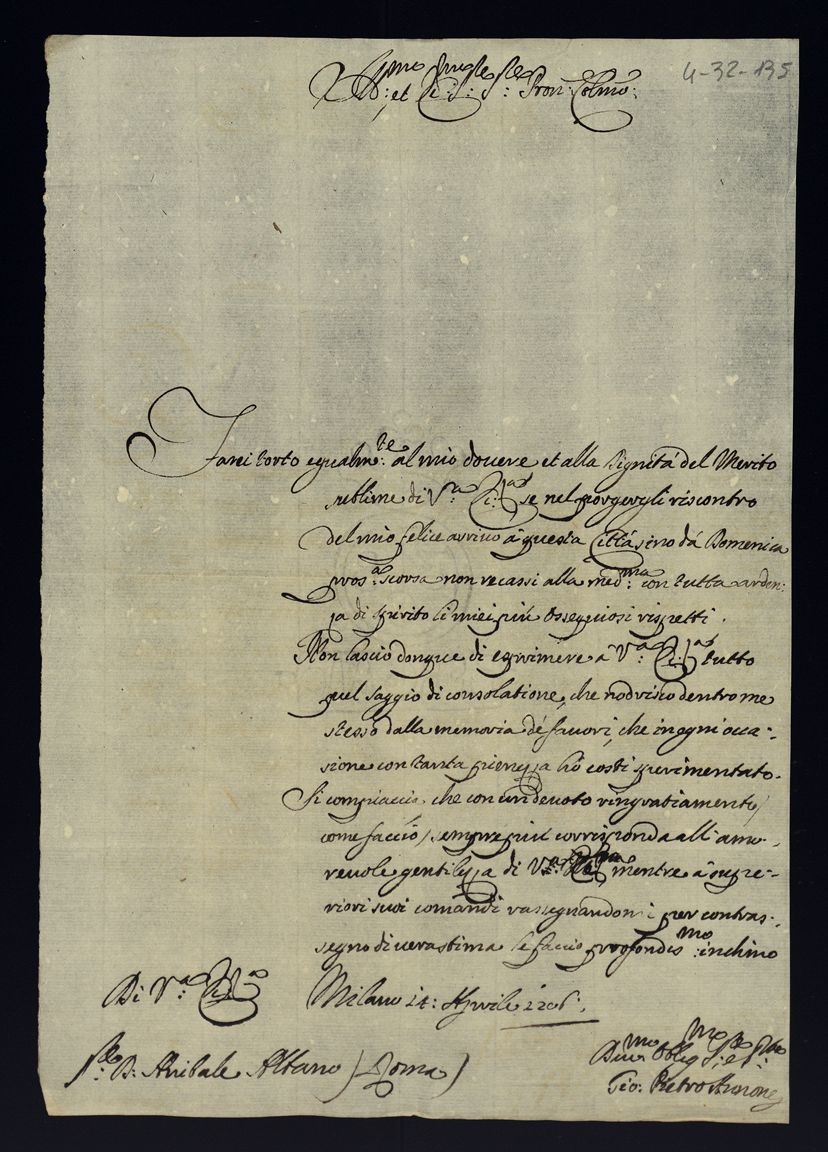 4-32-135
Ill:mo et Ecc:mo Sig:re Sig:re Pron: Colmo:
Farei torto egualm:te al mio douere et alla dignità del Merito
sublime di V:a Ecc:a se nel porgergli riscontro
del mio felice arriuo à questa Città sino dà Domenica
pros:a scorsa non recassi alla med:ma con tutta arden:
za di spirito li miei più ossequiosi rispetti.
Non lascio donque di esprimere a V:a Ecc:a tutto
quel saggio di consolatione, che nodrisco dentro me
stesso dalla memoria de' fauori, che in ogni occa:
sione con tanta pienezza hò costì sperimentato.
Si compiaccia, che con un deuoto ringratiamento /
come faccio / sempre più corrisponda all'amo:
reuole gentilezza di V:a mentre à supe:
riori suoi comandi rassegnandomi per contras:
segno di uera stima le faccio profondis:mo inchino
Di V:a Ecc:a Milano 14: Aprile 1706.
S:re D: Anibale Albano / Roma /
Diu:mo Oblig:mo
Gio: Pietro